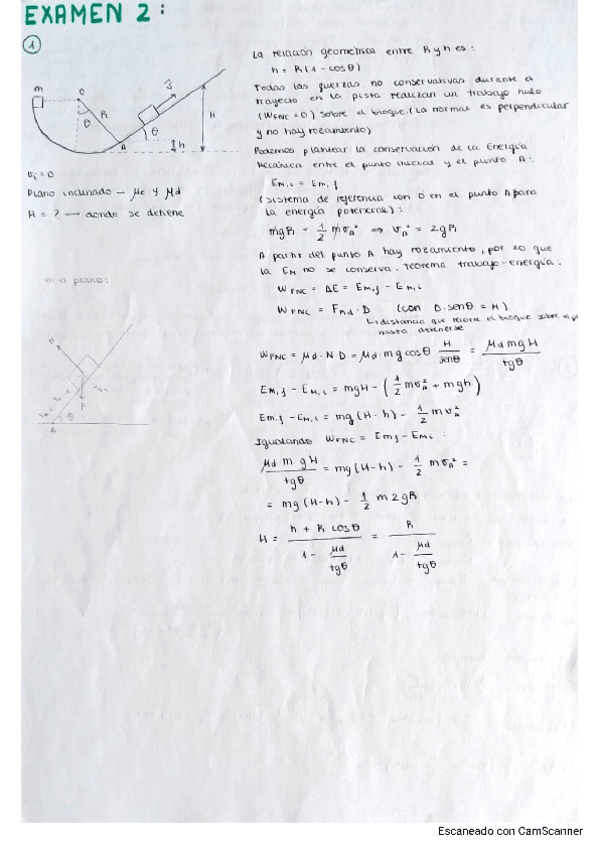 EXAMEN 2:
1
m
O
R
θ
A
θ
h
H
v
vi = 0
Plano inclinado — μe y μd
H = ? → donde se detiene
en el plano:
N
A
θ
La relación geométrica entre R y h es:
h = R(1 - cosθ)
Todas las fuerzas no conservativas durante el
trayecto en la pista realizan un trabajo nulo
(WFNC = 0) sobre el bloque. (La normal es perpendicular
y no hay rozamiento)
Podemos plantear la conservación de la Energía
Mecánica entre el punto inicial y el punto A:
Em,i = Em,f
(sistema de referencia con 0 en el punto A para
la energía potencial):
mgR = 1/2 m vA² ⇒ vA² = 2gR
A partir del punto A hay rozamiento, por lo que
la EM no se conserva. Teorema trabajo-energía:
WFNC = ΔE = Em,f - Em,i
WFNC = FR,d · D (con D·senθ = H)
↳ distancia que recorre el bloque sobre el
hasta detenerse
WFNC = μd · N · D = μd · mg cosθ H/senθ = μd mg H/tgθ
Em,f - Em,i = mgH - (1/2 m vA² + mgh)
Em,f - Em,i = mg(H - h) - 1/2 m vA²
Igualando WFNC = Emf - Emi :
μd · m · g H/tgθ = mg(H-h) - 1/2 m vA² =
= mg(H-h) - 1/2 m 2gR
H = h + R cosθ/1 - μd/tgθ = R/1 - μd/tgθ
Escaneado con CamScanner